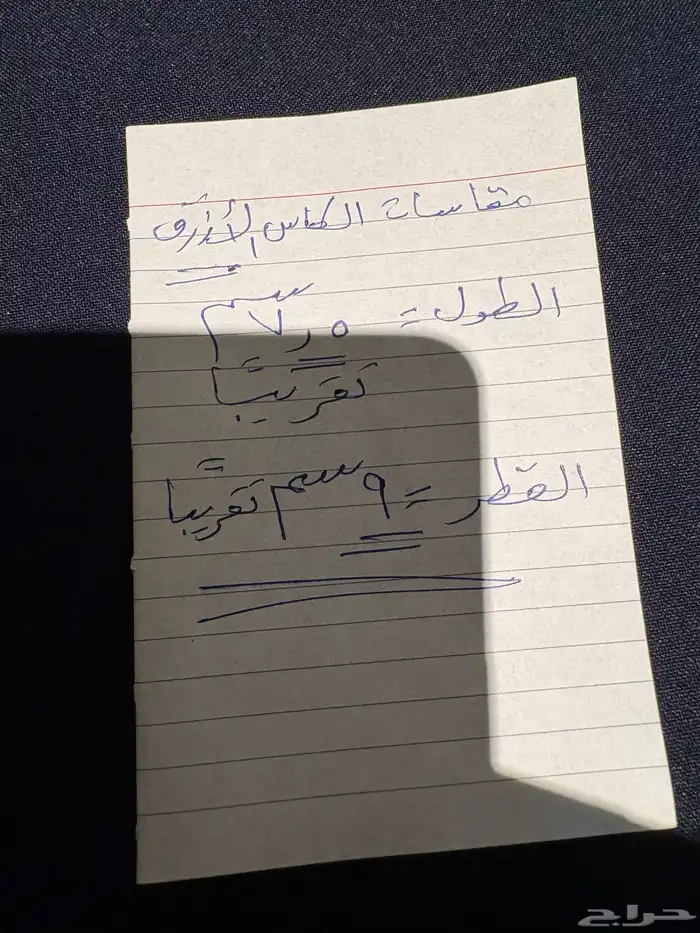 مقاسات الكاس الأزرق
الطول = ٥ر٧ سم
تقريبًا
القطر = ٩ سم تقريبًا
حراج